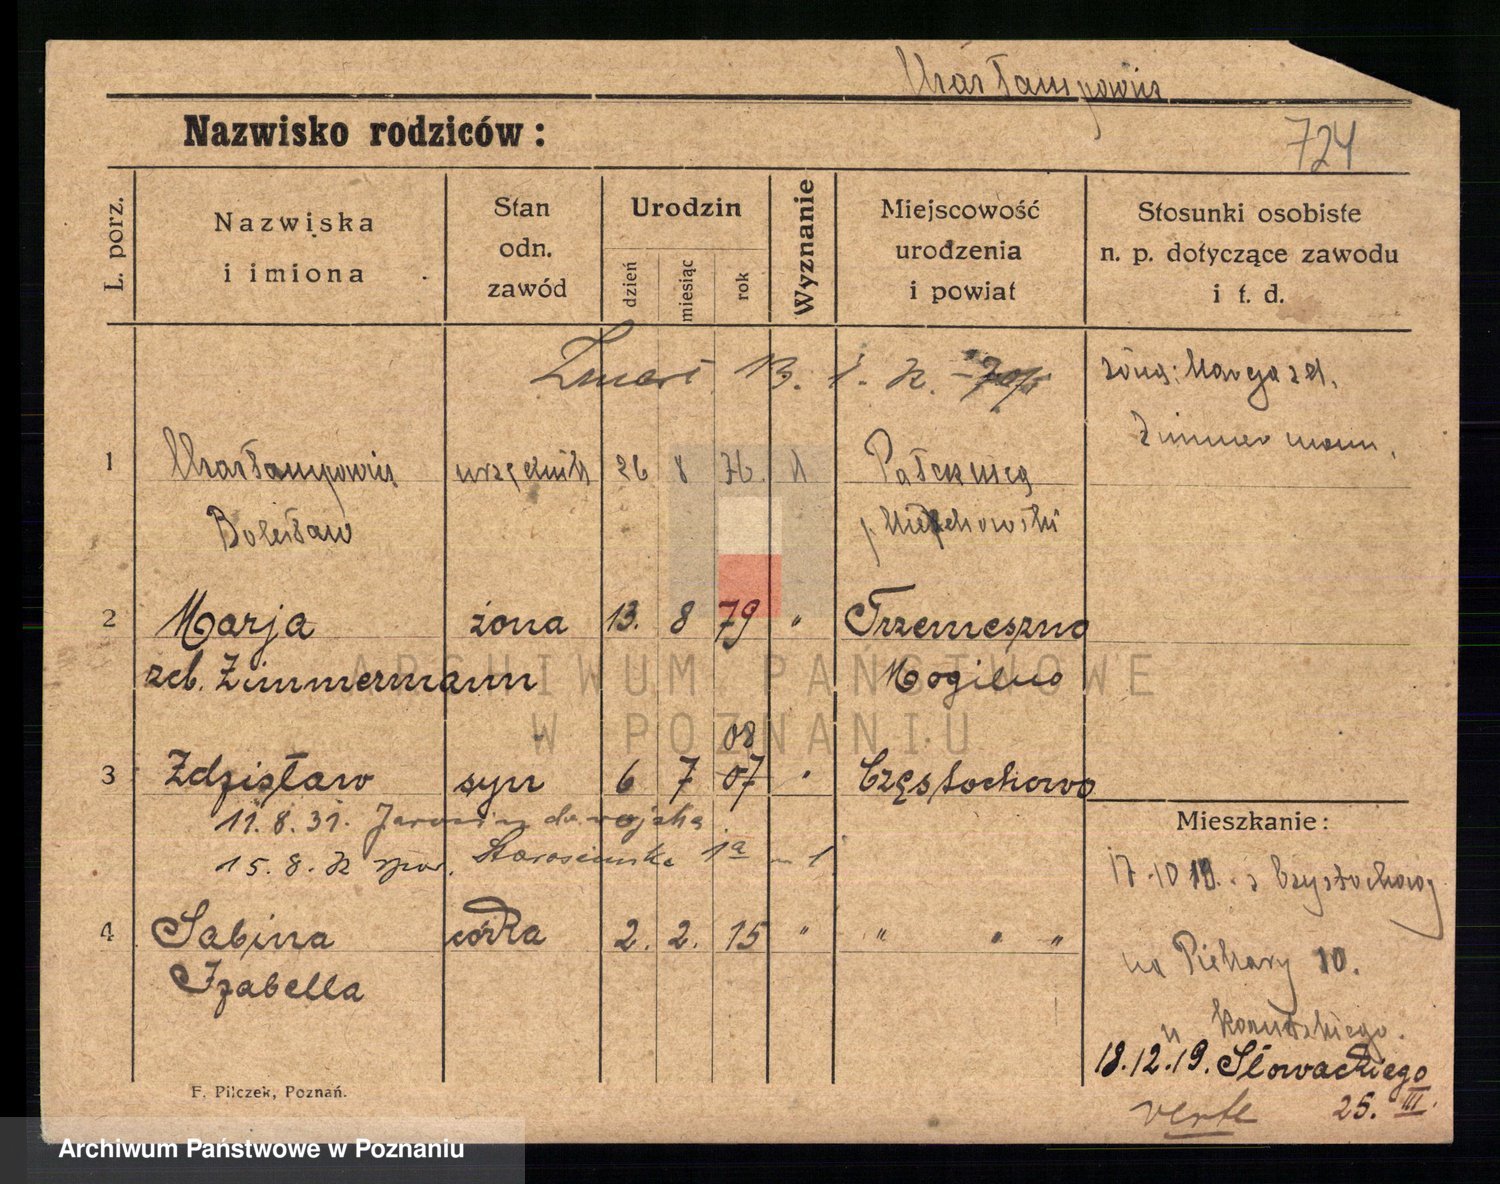 Charłampowicz
Nazwisko rodziców:
724
L. porz.
Nazwiska
i imiona
Stan
odn.
zawód
Urodzin
dzień
miesiąc
rok
Wyznanie
Miejscowość
urodzenia
i powiat
Stosunki osobiste
n. p. dotyczące zawodu
i t. d.
Zmarł 13. 1. 32.
żona: Marja zd.
Zimmermann.
1 Charłampowicz urzędnik 26 8 76. k Pałecznica
Bolesław p. Miechowski
2 Marja żona 13. 8 79 " Trzemeszno
zeb. Zimmermann Mogilno
08
3 Zdzisław syn 6 7 07 " Częstochowa
11.8.31. Jarocin do wojska
15.8.32 spor. 1a
4 Sabina córka 2. 2. 15 " " " "
Izabella
Mieszkanie:
17.10 19. z Częstochowy
na Piekary 10.
u
18.12.19. Słowackiego
25. III.
verte
F. Pilczek, Poznań.
ARCHIWUM PAŃSTWOWE
W POZNANIU
Archiwum Państwowe w Poznaniu